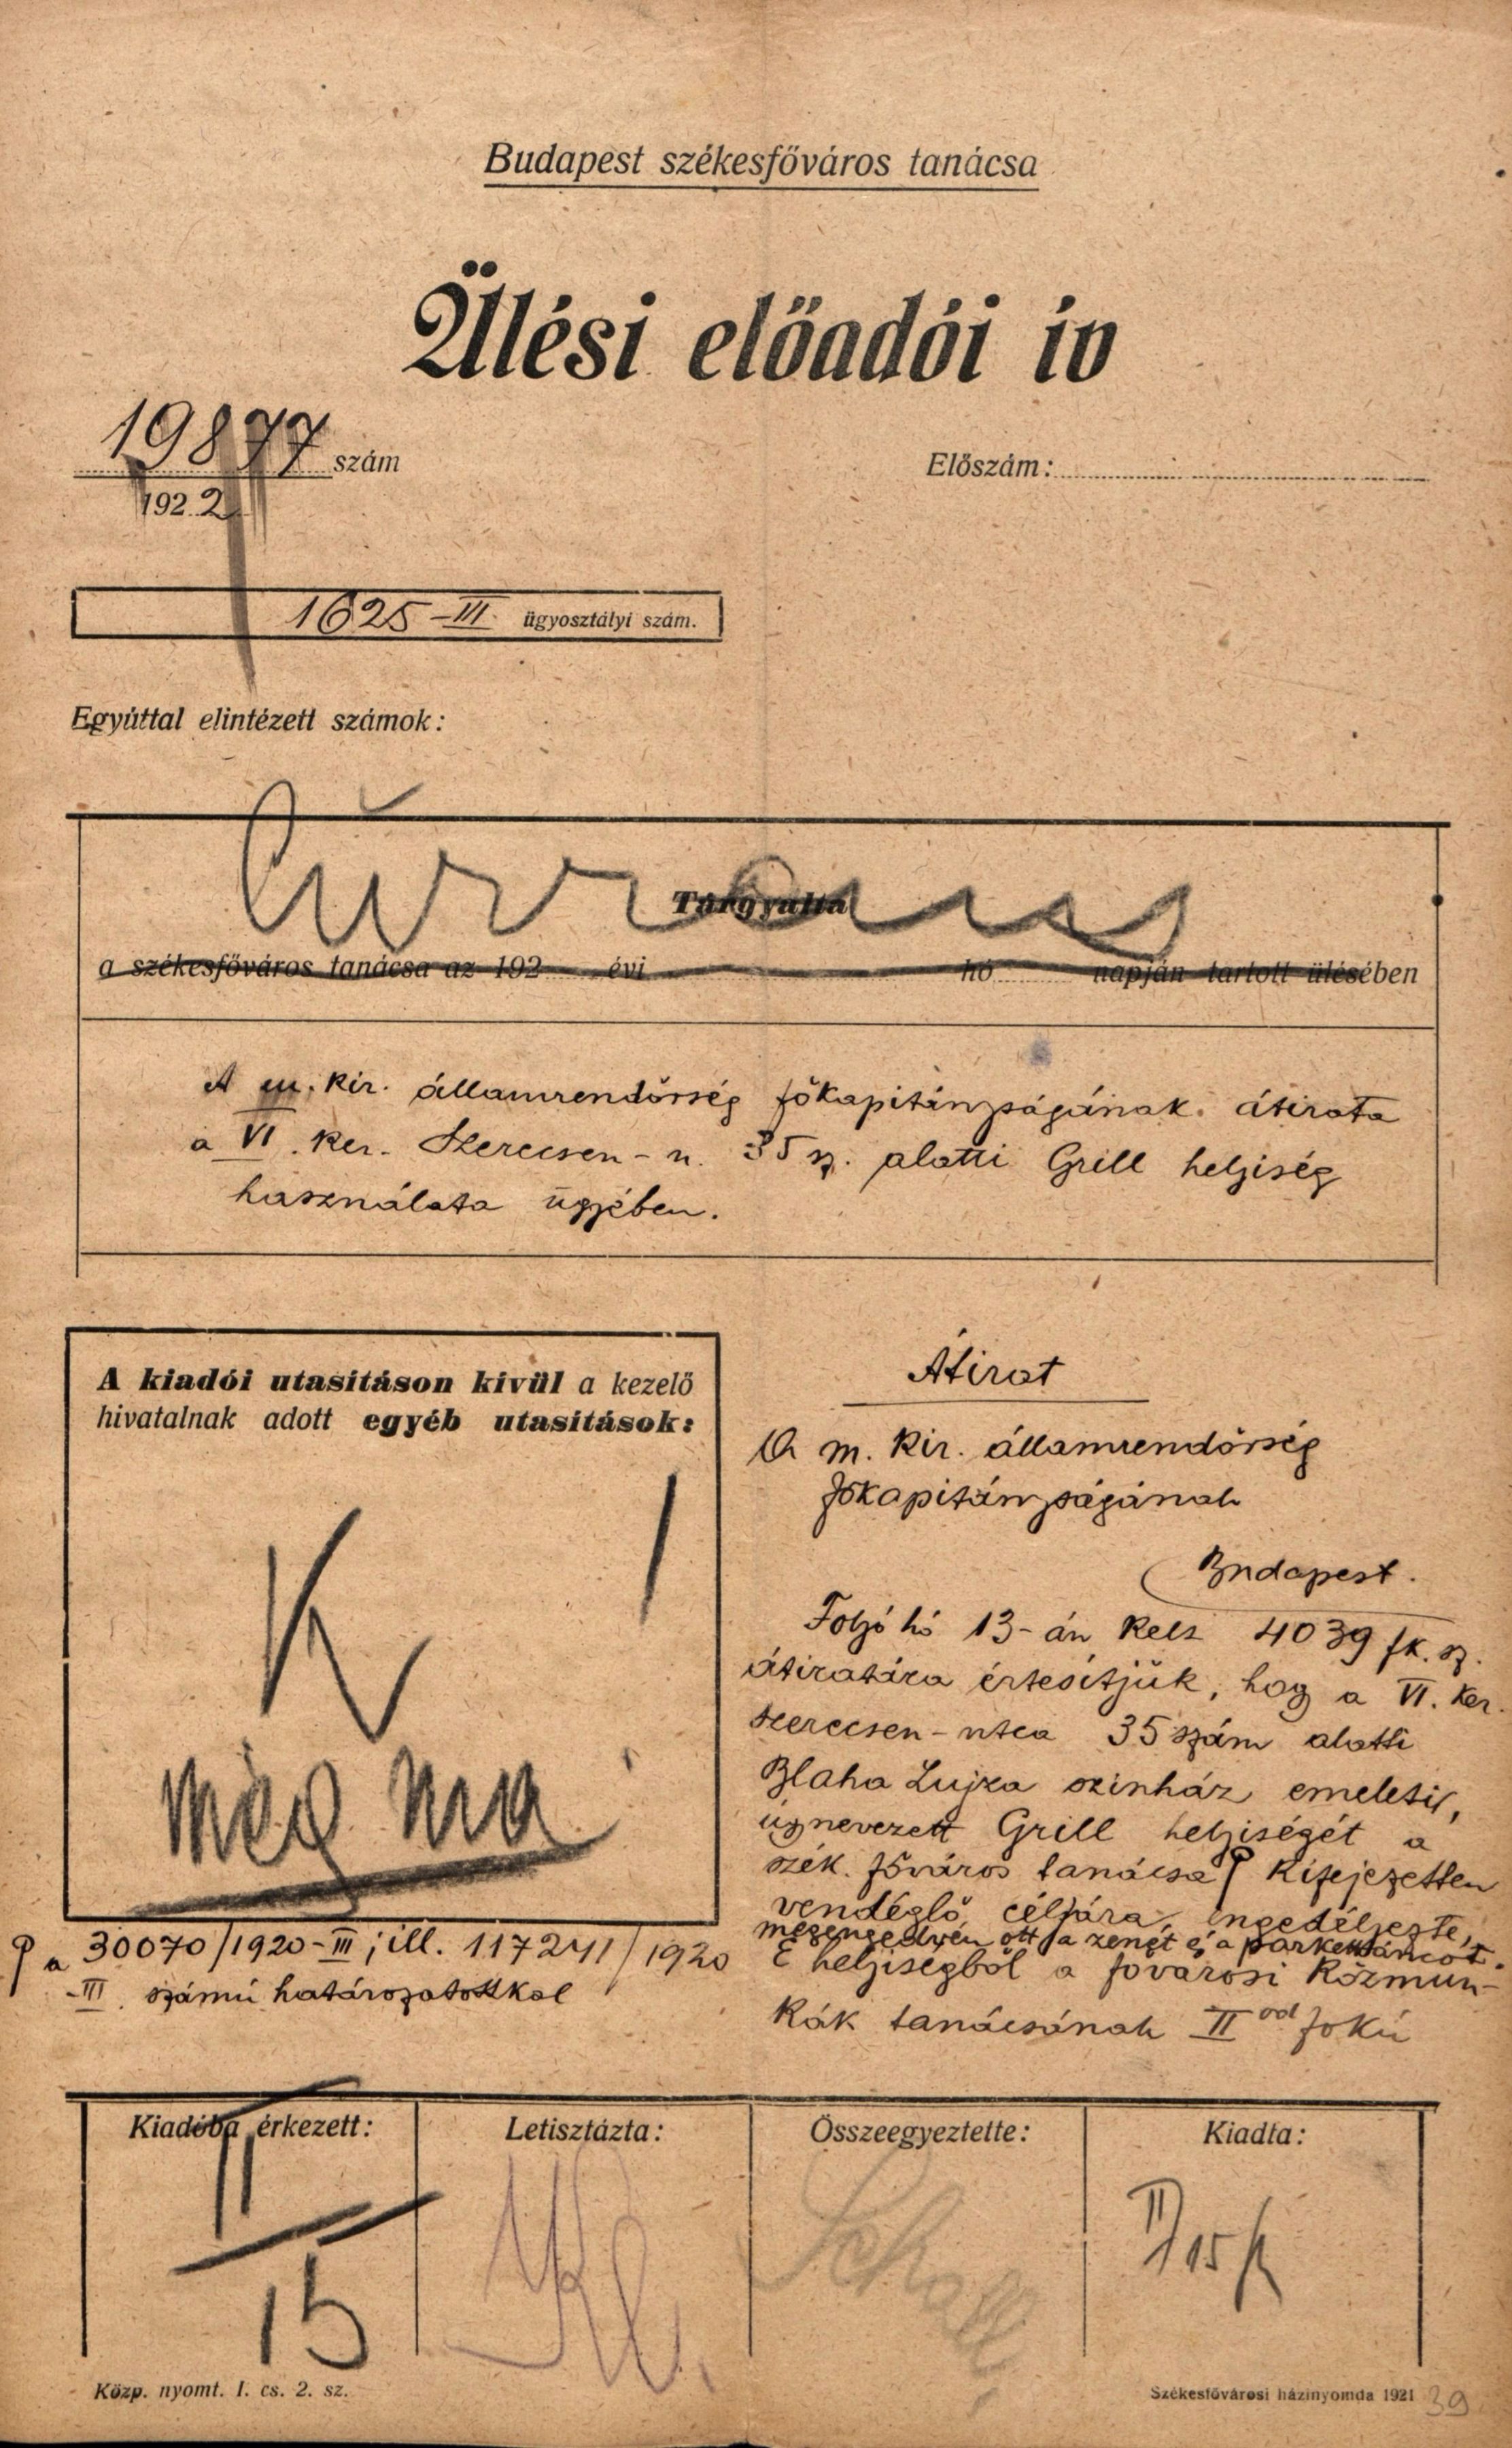 Budapest székesfőváros tanácsa
Ülési előadói iv
19877 szám
1922
Előszám:
1625-III ügyosztályi szám.
Együttal elintézett számok:
Tárgyalta
a székesfőváros tanácsa az 192 évi hó napján tartott ülésében
A m. kir. államrendőrség főkapitányságának átirata
a VI. ker. Szerecsen-u. 35 sz. alatti Grill helyiség
használata ügyében.
A kiadói utasításon kívül a kezelő
hivatalnak adott egyéb utasítások:
K
még ma
a 30070/1920-III; ill. 117241/1920
-III. számú határozatokkal
Átirat
A m. kir. államrendőrség
főkapitányságának
Budapest.
Folyó hó 13-án kelt 4039 fk. sz.
átiratára értesítjük, hogy a VI. ker.
Szerecsen-utca 35 szám alatti
Blaha Lujza szinház emeleti,
úgynevezett Grill helyiségét a
szék. főváros tanácsa kifejezetten
vendéglő céljára engedélyezte,
megengedvén ott a zenét és a parkettáncot.
E helyiségből a fővárosi Közmun-
kák tanácsának II od fokú
Kiadóba érkezett:
II
15
Letisztázta:
Összeegyeztette:
Schall
Kiadta:
II/15
Közp. nyomt. I. cs. 2. sz.
Székesfővárosi házinyomda 1921
39